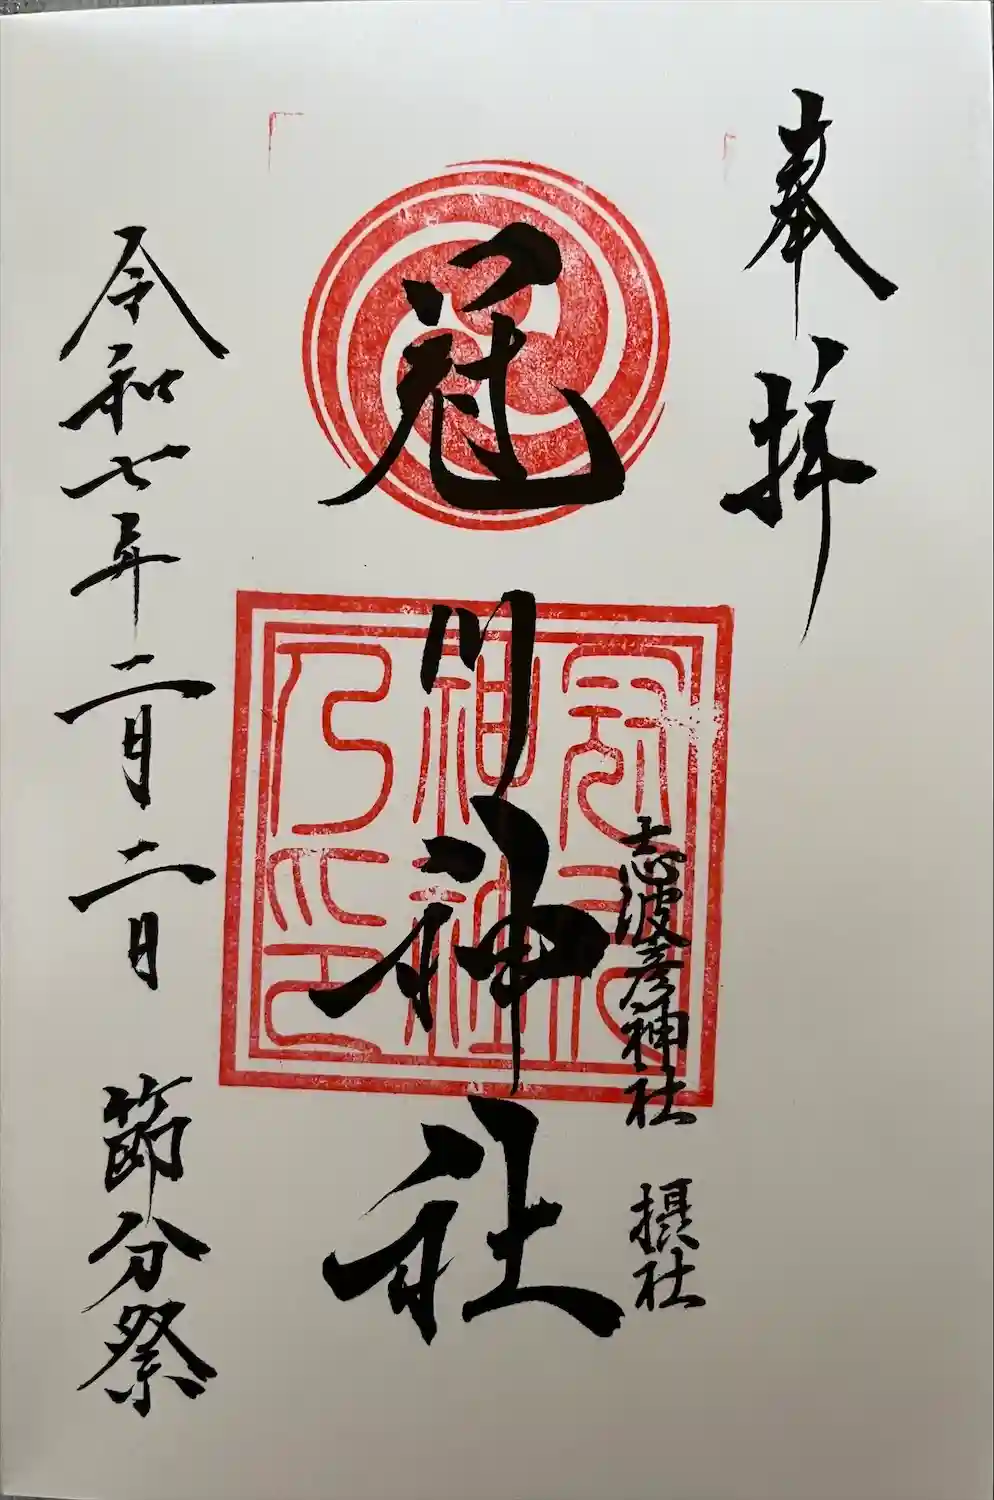 奉拝
志波彦神社 摂社
冠川神社
冠川
神社
乃印
令和七年二月二日 節分祭